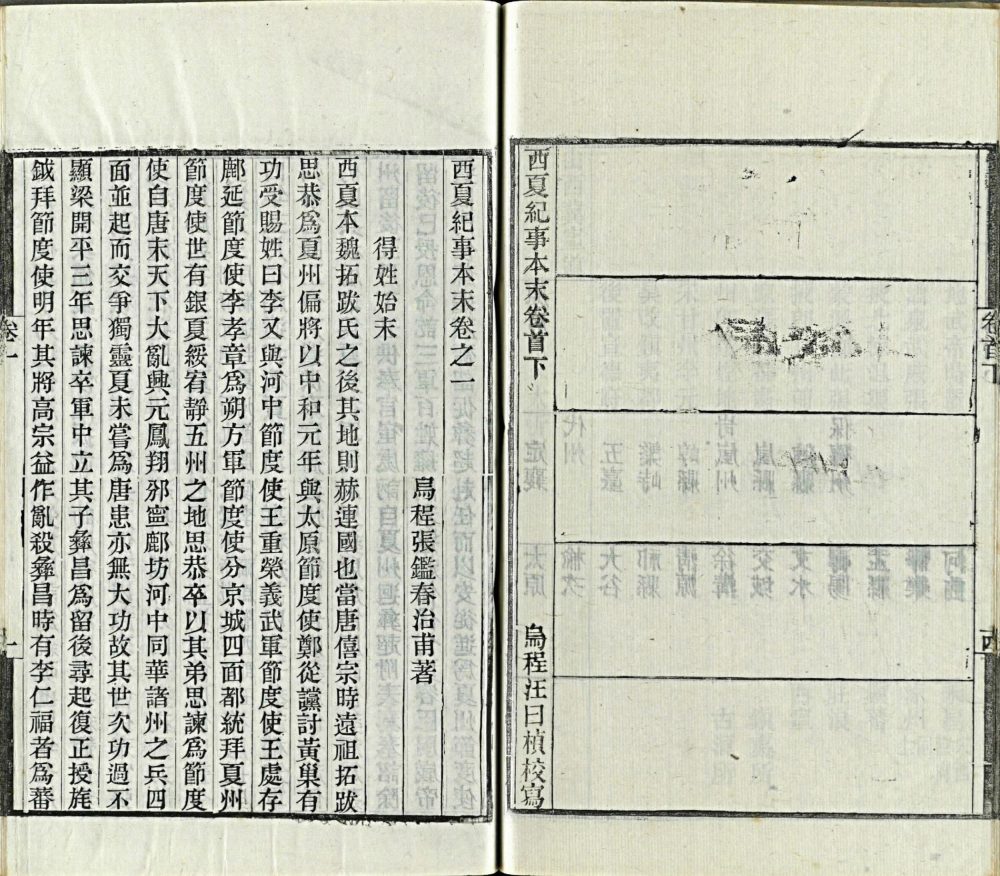 卷首下
四
西夏紀事本末卷首下
烏程汪曰楨校寫
西夏紀事本末卷之一
烏程張鑑春治甫著
得姓始末
西夏本魏拓跋氏之後其地則赫連國也當唐僖宗時遠祖拓跋
思恭爲夏州偏將以中和元年與太原節度使鄭從讜討黃巢有
功受賜姓曰李又與河中節度使王重榮義武軍節度使王處存
鄜延節度使李孝章爲朔方軍節度使分京城四面都統拜夏州
節度使世有銀夏綏宥靜五州之地思恭卒以其弟思諫爲節度
使自唐末天下大亂興元鳳翔邠寧鄜坊河中同華諸州之兵四
面並起而交爭獨靈夏未嘗爲唐患亦無大功故其世次功過不
顯梁開平三年思諫卒軍中立其子彝昌爲留後尋起復正授旄
鉞拜節度使明年其將高宗益作亂殺彝昌時有李仁福者爲蕃
卷一
一